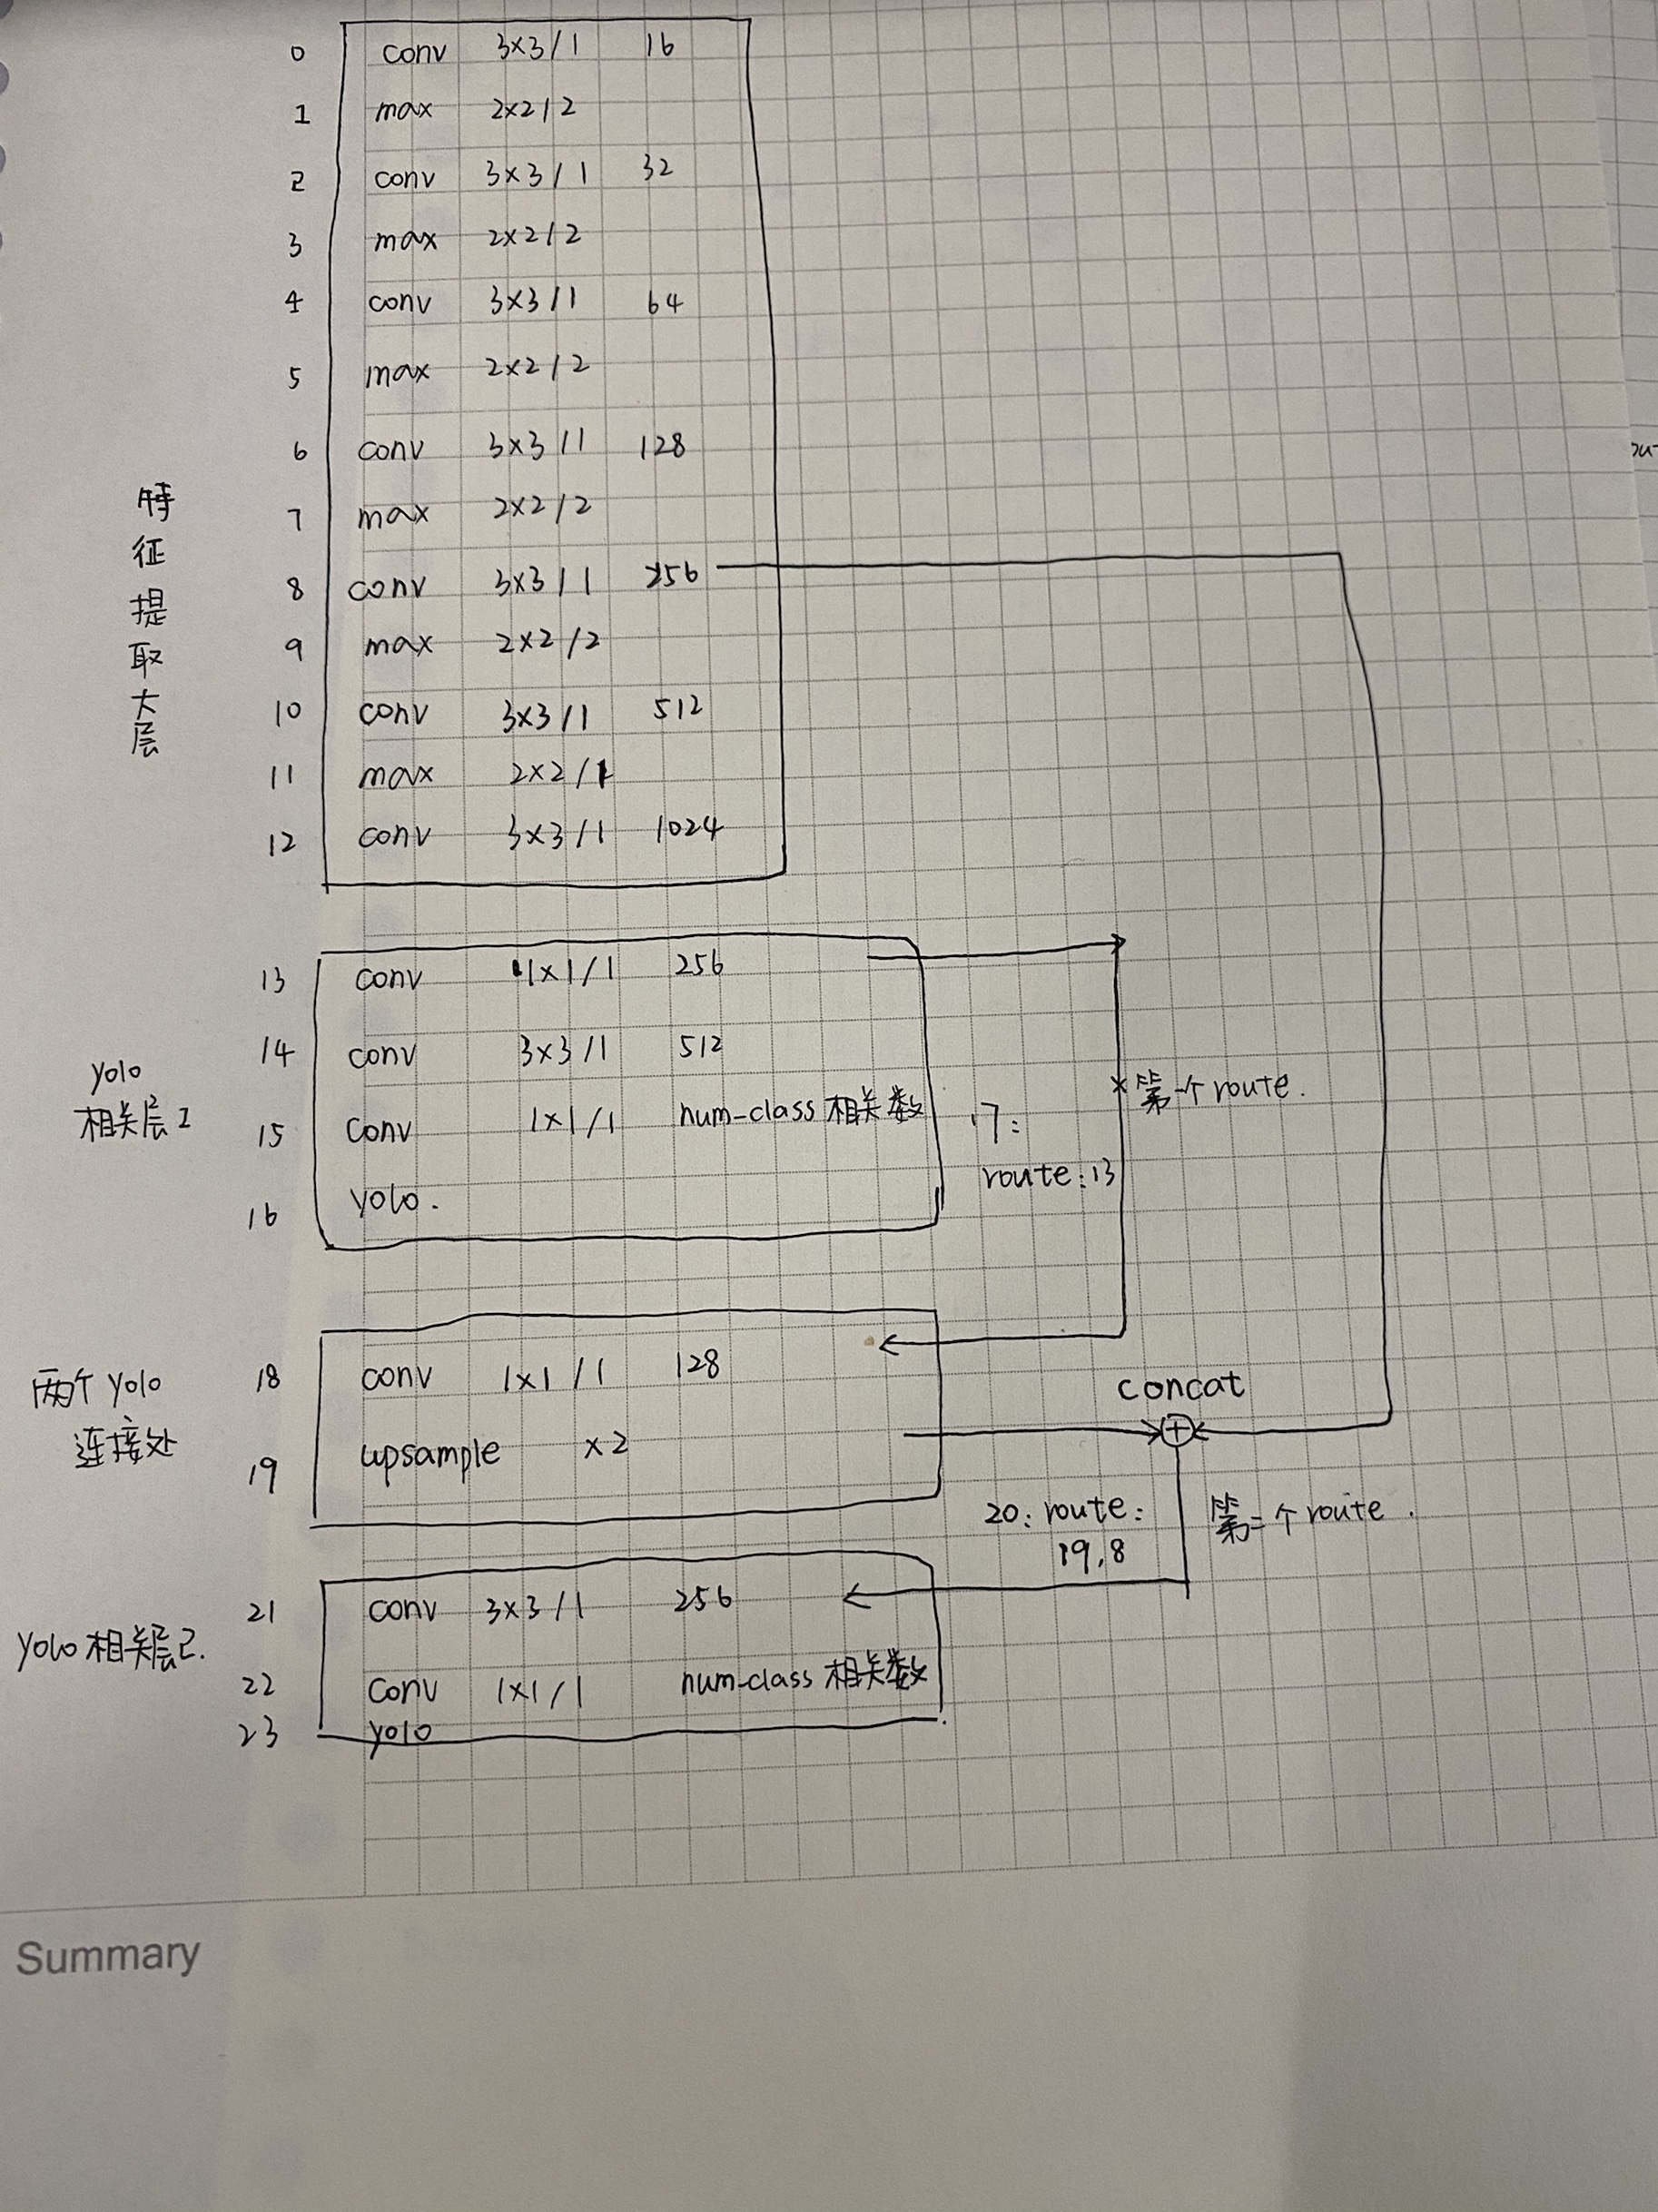 0 conv 3×3/1 16
1 max 2×2/2
2 conv 3×3/1 32
3 max 2×2/2
4 conv 3×3/1 64
5 max 2×2/2
6 conv 3×3/1 128
7 max 2×2/2
8 conv 3×3/1 256
9 max 2×2/2
10 conv 3×3/1 512
11 max 2×2/1
12 conv 3×3/1 1024
特征提取大层
13 conv 1×1/1 256
14 conv 3×3/1 512
15 conv 1×1/1 num-class 相关数
16 yolo.
yolo
相关层1
17:
route:13
第一个route.
18 conv 1×1/1 128
19 upsample ×2
两个yolo
连接处
concat
+
20: route:
19,8
第二个route.
21 conv 3×3/1 256
22 conv 1×1/1 num-class 相关数
23 yolo
yolo相关层2.
Summary